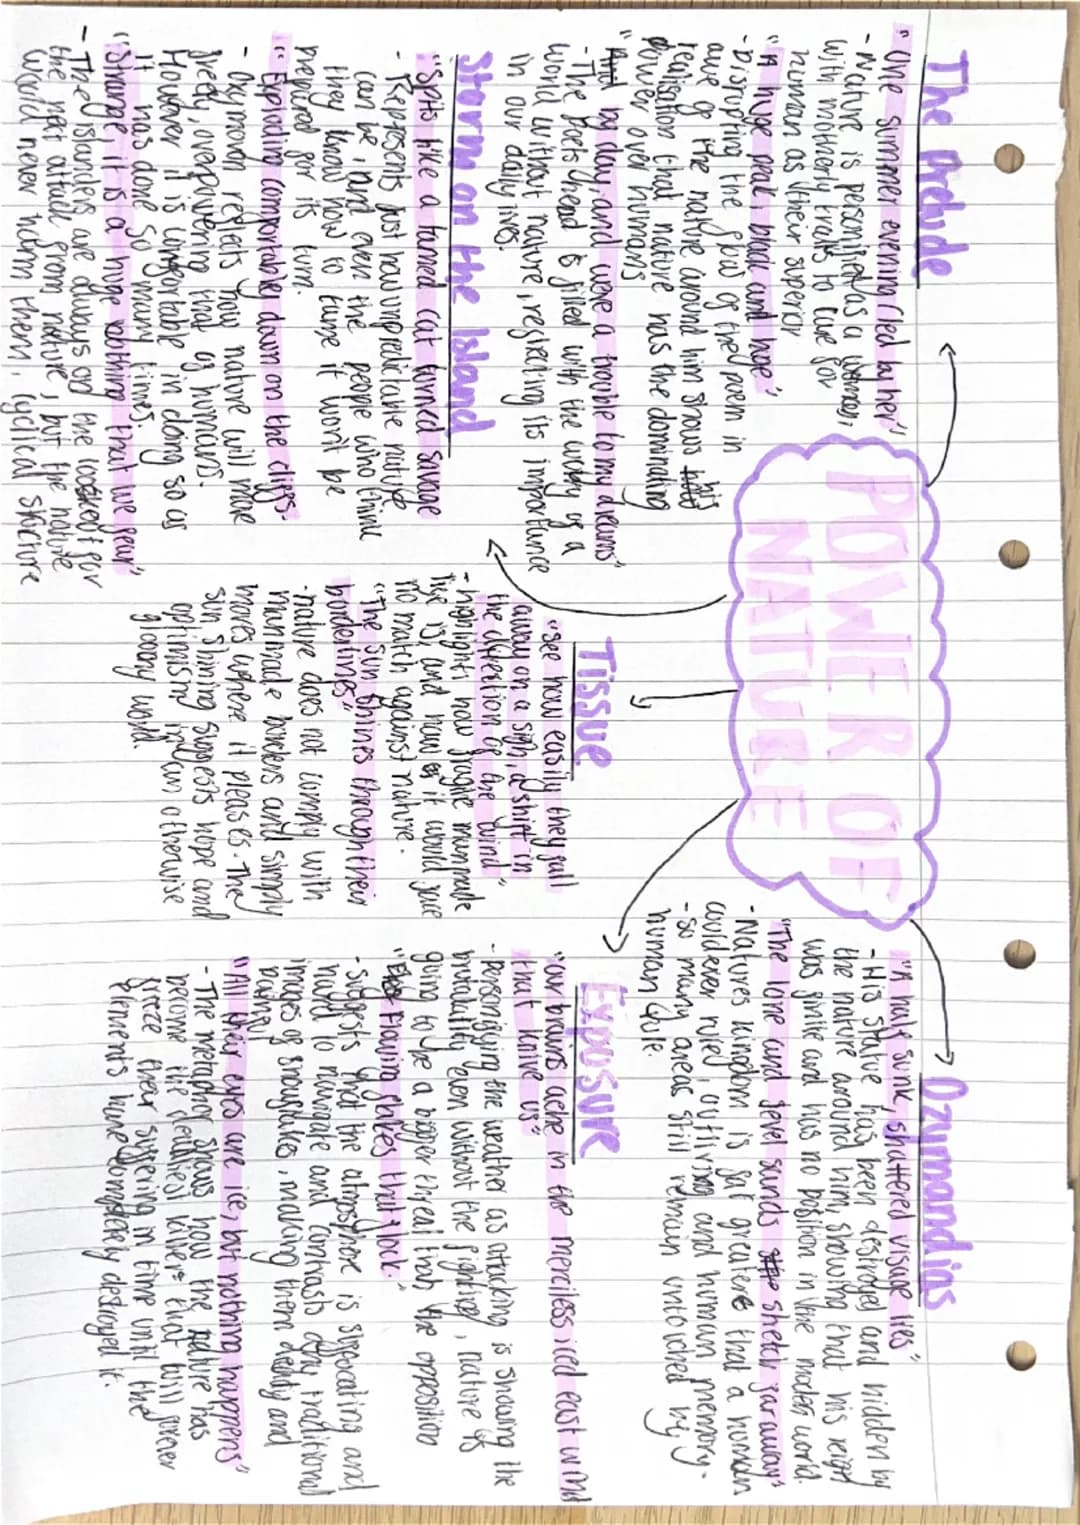 POWER OF
NATURE
The Prelude
"One summer evening (led by her)"
- Nature is personified as a woman,
with motherly traits to care for
human as their superior
"A huge peak, black and huge"
- Disrupting the flow of the poem in
awe of the nature around him shows his
realisation that nature has the dominating
power over humans
"And by day, and were a trouble to my dreams"
- The poets head is filled with the worry of a
world without nature, reflecting its importance
in our daily lives.
Storm on the Island
"Spits like a tamed cat turned savage
- Represents just how unpredictable nature
can be, and even the people who think
they know how to tame it won't be
prepared for its turn.
"Exploding comfortably down on the cliffs-
- Oxymoron reflects how nature will more
greedy, overpowering that of humans.
However it is comfortable in doing so as
it has done so many times.
"Strange, it is a huge nothing that we fear"
- The islanders are always on the lookout for
the next attack from nature, but the nature
would never harm them, cyclical structure
Tissue
"see how easily they fall
away on a sigh, a shift in
the direction of the wind"
- highlight how fragile manmade
life is and how it would have
no match against nature.
"The sun shines through their
borderlines"
- nature does not comply with
manmade borders and simply
moves where it pleases. The
sun shining suggests hope and
optimism in an otherwise
gloomy world.
Ozymandias
"A half sunk, shattered visage lies"
- His statue has been destroyed and hidden by
the nature around him, showing that his reign
was finite and has no position in the modern world.
"The lone and level sands stretch far away"
- Natures kingdom is far greater that a human
could ever ruled, outliving and human memory.
- So many areas still remain untouched by
human rule.
Exposure
"our brains ache in the merciless iced east wind
that knive us"
- personifying the weather as attacking is showing the
brutality even without the fighting, nature is
going to be a bigger threat than the opposition
"Flowing flakes that flock."
- suggests that the atmosphere is suffocating and
hard to navigate and contrasts any traditional
images of snowflakes, making them deadly and
painful
"All their eyes are ice, but nothing happens"
- The metaphor shows how the nature has
become the deadliest killer that will forever
freeze their suffering in time until the
elements have completely destroyed it.